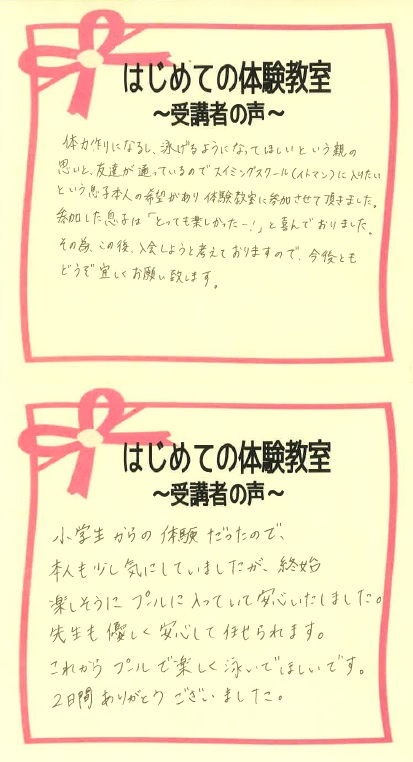 はじめての体験教室
～受講者の声～
体力作りになるし、泳げるようになってほしいという親の
思いと、友達が通っているのでスイミングスクール(イトマン)に入りたい
という息子本人の希望があり体験教室に参加させて頂きました。
参加した息子は「とっても楽しかったー!」と喜んでおりました。
その為、この後、入会しようと考えておりますので、今後とも
どうぞ宜しくお願い致します。
はじめての体験教室
～受講者の声～
小学生からの体験だったので、
本人も少し気にしていましたが、終始
楽しそうにプールに入っていて安心いたしました。
先生も優しく安心して任せられます。
これからプールで楽しく泳いでほしいです。
2日間ありがとうございました。